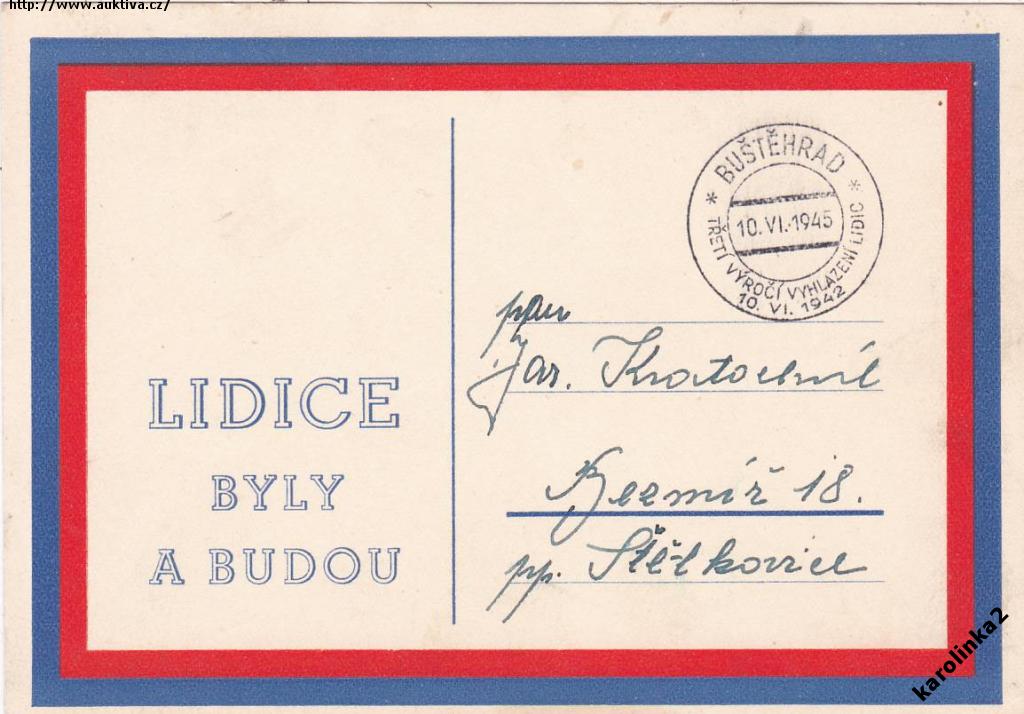 http://www.auktiva.cz/
* BUŠTĚHRAD *
10.VI.1945
TŘETÍ VÝROČÍ VYHLAZENÍ LIDIC
10. VI. 1942
LIDICE
BYLY
A BUDOU
pan
Jar. Kratochvíl
Bezmíř 18.
pp. Štětkovice
karolinka2